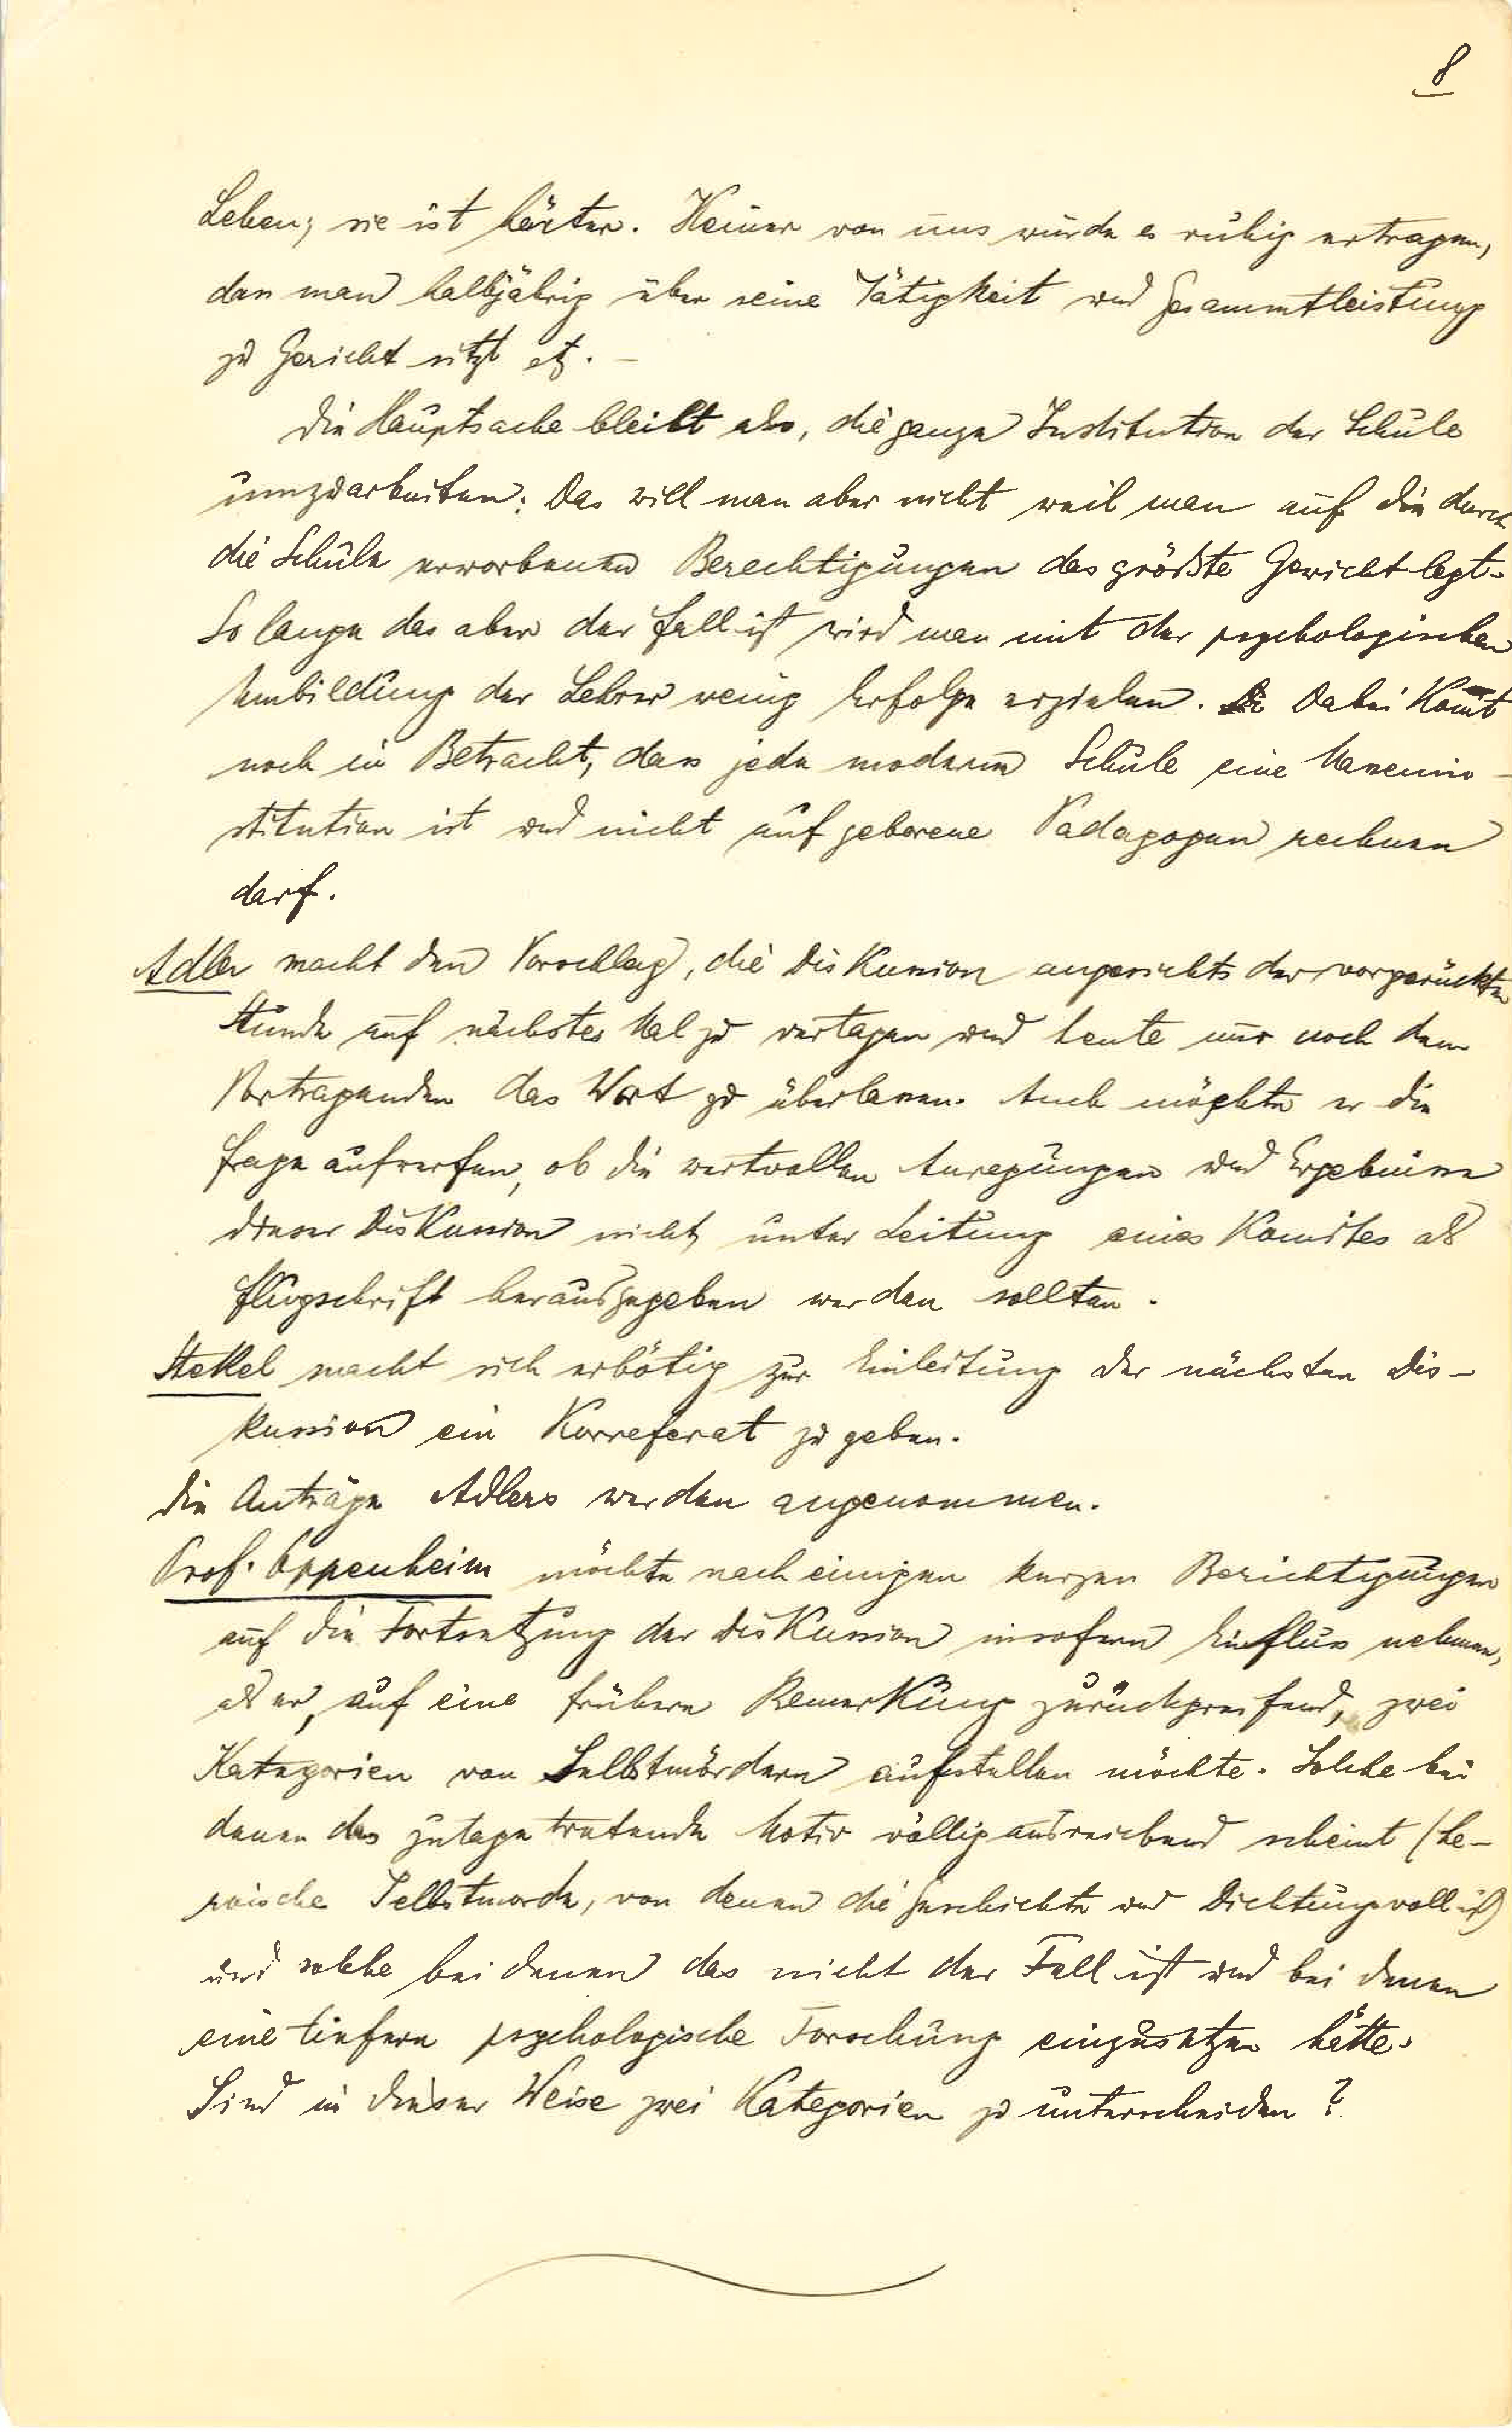 8
Leben; sie ist härter. Keiner von uns würde es ruhig ertragen,
dass man halbjährig über seine Tätigkeit und Gesammtleistung
zu Gericht sitzt etz. –
Die Hauptsache bleibt also, die ganze Institution der Schule
umzuarbeiten: Das will man aber nicht weil man auf die durch
die Schule erworbenen Berechtigungen das größte Gewicht legt.
So lange das aber der Fall ist wird man mit der psychologischen
Umbildung der Lehrer wenig Erfolge erzielen. Dabei kommt
noch in Betracht, dass jede moderne Schule eine Massenin-
stitution ist und nicht auf geborene Pädagogen rechnen
darf.
Adler macht den Vorschlag, die Diskussion angesichts der vorgerückten
Stunde auf nächstes Mal zu vertagen und heute nur noch dem
Vortragenden das Wort zu überlassen. Auch möchte er die
Frage aufwerfen, ob die wertvollen Anregungen und Ergebnisse
dieser Diskussion nicht unter Leitung eines Komites als
Flugschrift herausgegeben werden sollten.
Stekel macht sich erbötig zur Einleitung der nächsten Dis-
kussion ein Korreferat zu geben.
Die Anträge Adlers werden angenommen.
Prof. Oppenheim möchte nach einigen kurzen Berichtigungen
auf die Fortsetzung der Diskussion insofern Einfluss nehmen,
als er, auf eine frühere Bemerkung zurückgreifend, zwei
Kategorien von Selbstmördern aufstellen möchte. Solche bei
denen das zutage tretende Motiv völlig ausreichend scheint (he-
roische Selbstmorde, von denen die Geschichte und Dichtung voll ist)
und solche bei denen das nicht der Fall ist und bei denen
eine tiefere psychologische Forschung einzusetzen hätte.
Sind in dieser Weise zwei Kategorien zu unterscheiden?